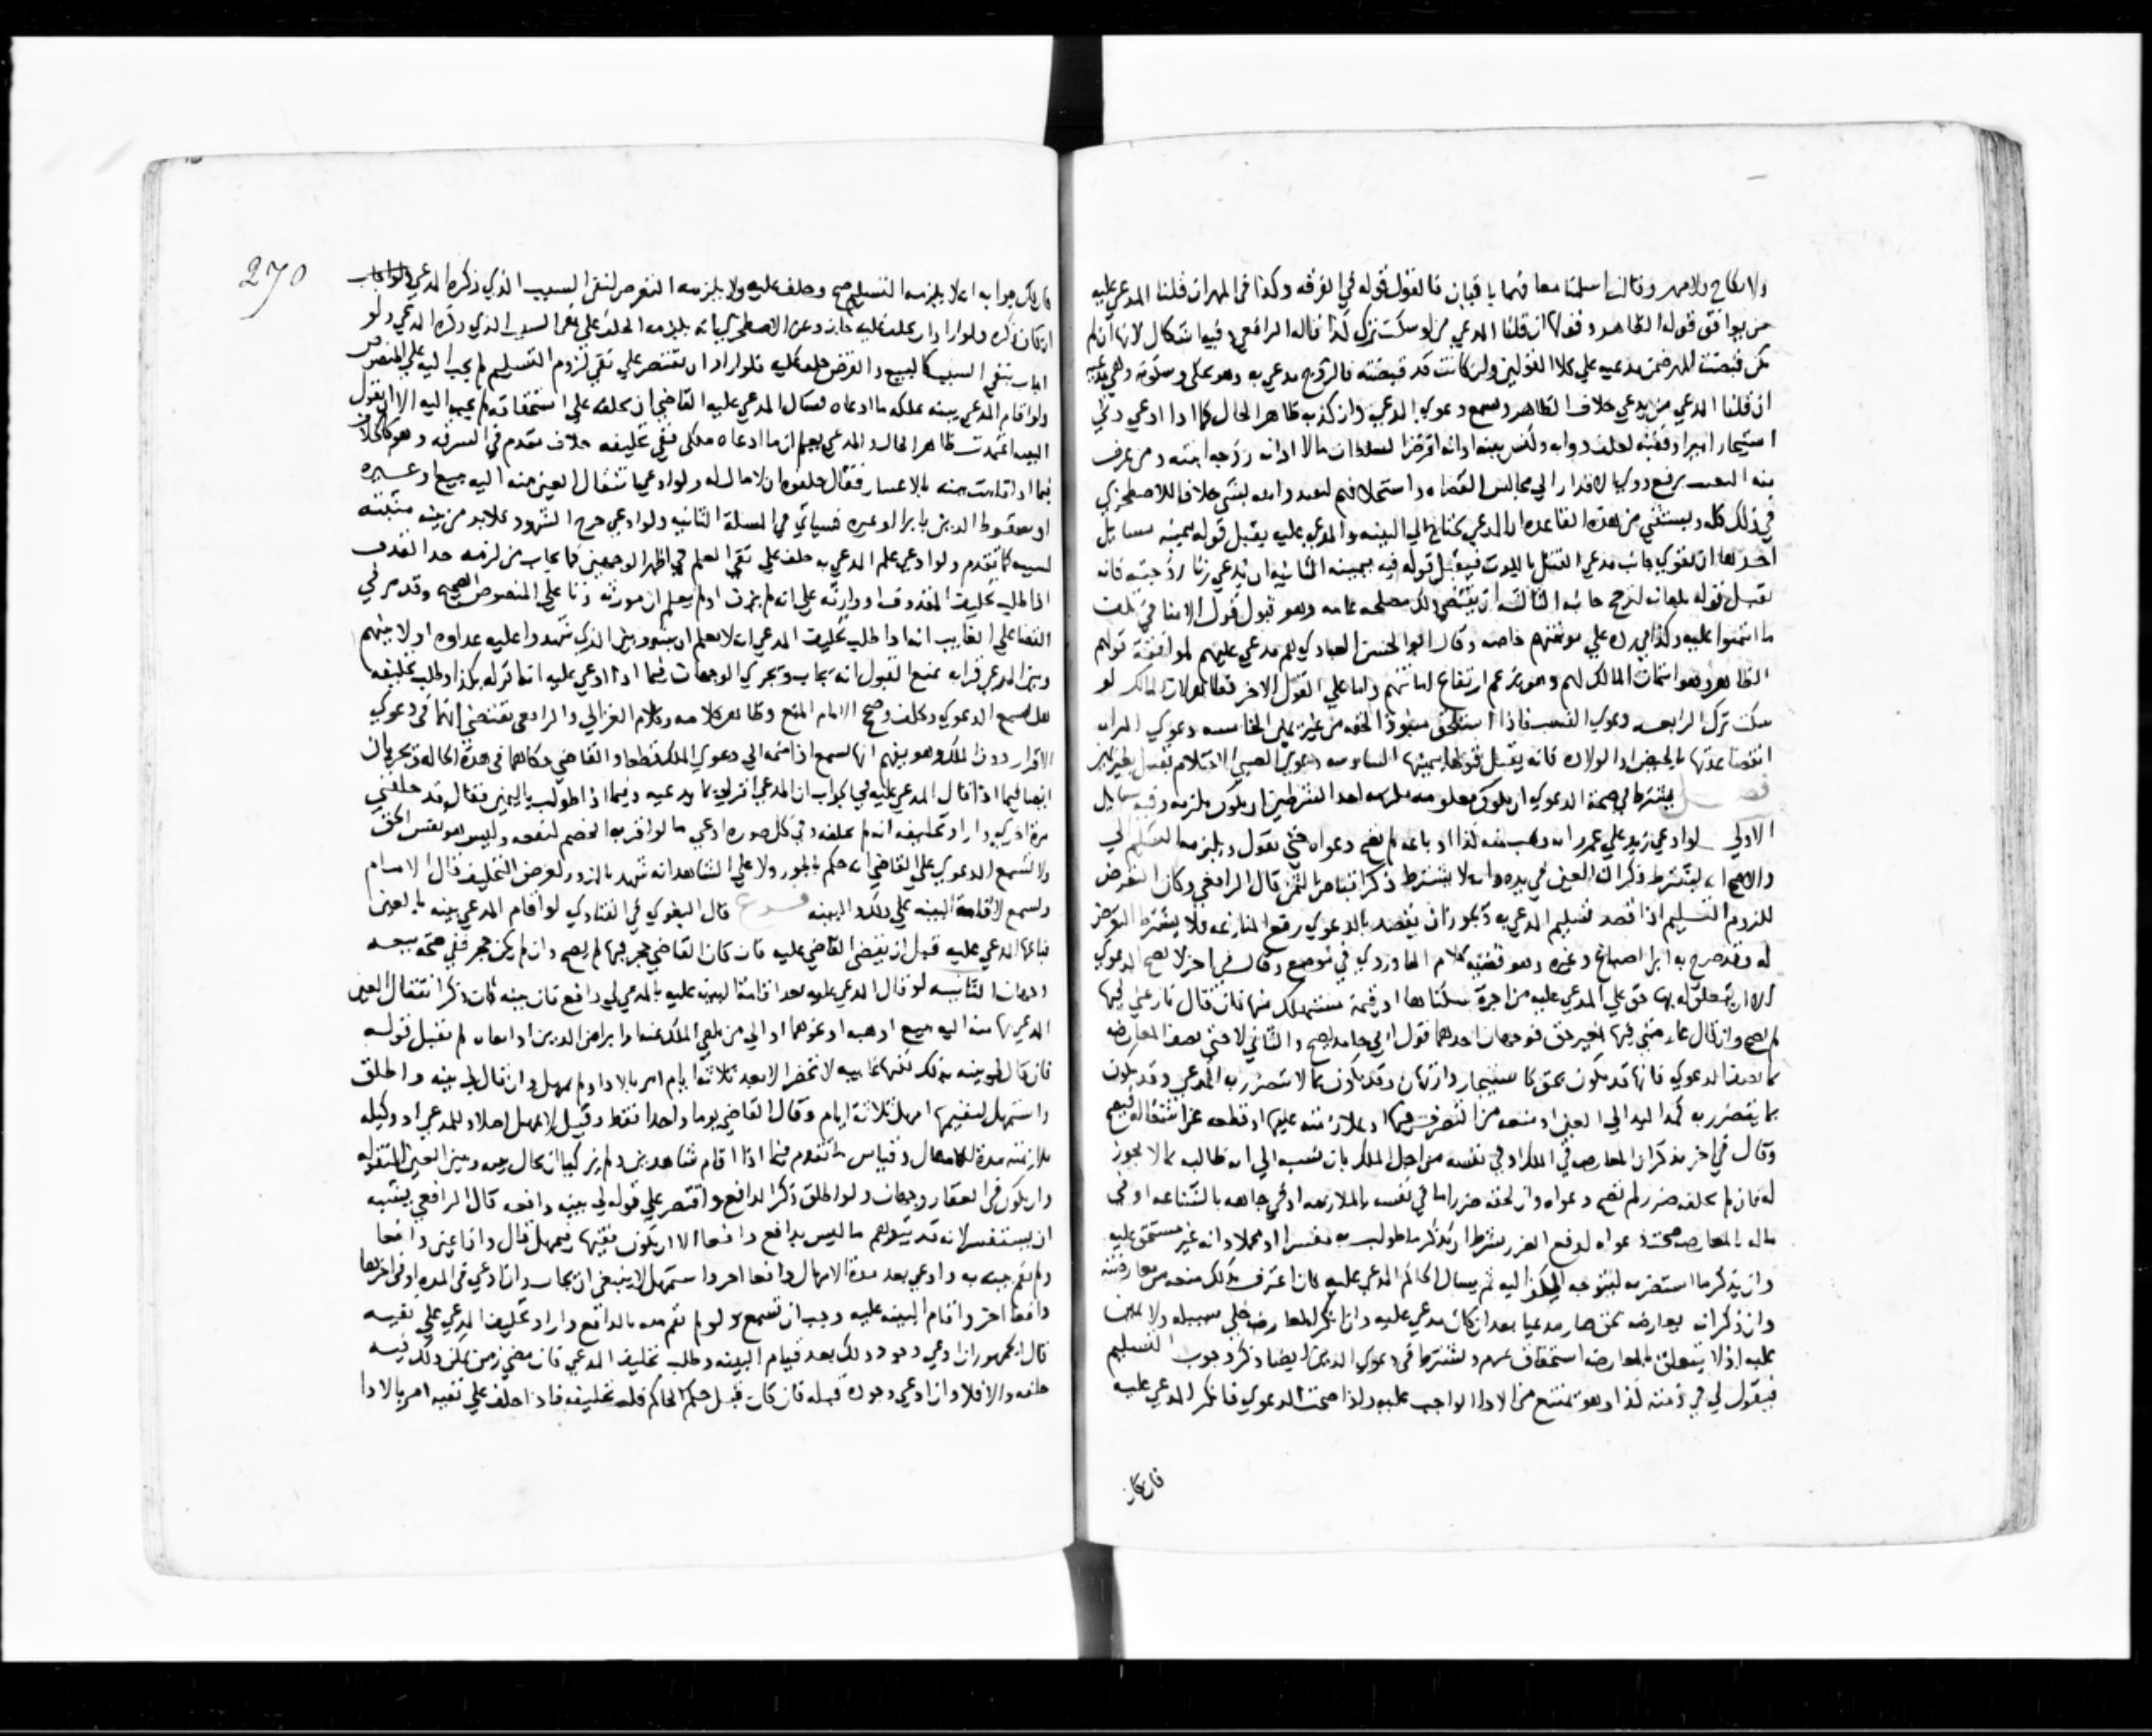 ولا نكاح ولا مهر وقالت اسلمنا معا فهما باقيان فالقول قوله في الفرقه وكذا في المهر ان قلنا المدعي عليه
من يوافق قوله الظاهر وقولها ان قلنا المدعي من لو سكت ترك كذا قاله الرافعي وفيه اشكال لانها ان لم
تكن قبضت المهر فهي مدعيه علي كلا القولين وان كانت قد قبضته فالزوج مدعي به وهو يخلي وسكوته وهي مدعيه
ان قلنا المدعي من يدعي خلاف الظاهر وتسمع دعوي المدعي وان كذبه ظاهر الحال كما اذا ادعي دني
استيجار امير او فقيه لعلف دوابه وكنس بيته او انه اقرض السلطان مالا او انه زوجه ابنته ومن عرف
منه التعنت برفع ذوي الاقدار الي مجالس القضاه واستحلافهم لتعبد وامنه بشي خلافا للاصطخري
في ذلك كله ويستثني من هذه القاعده ان المدعي يحتاج الي البينه والمدعي عليه يقبل قوله بيمينه مسايل
احدها ان تقوي جانب مدعي القتل باللوث فيقبل قوله فيه بيمينه الثانيه ان يدعي زنا زوجته فانه
يقبل قوله بلعانه لترجح جانبه الثالثه ان يقتضي ذلك مصلحه عامه وهو قبول قول الامنا في تلف
ما ائتمنوا عليه وكذا في رده علي مؤتمنهم خاصه وقال ابو الحسن العبادي هم مدعي عليهم لموافقة قولهم
الظاهر وهو ائتمان المالك لهم وهو يزعم ارتفاع امانتهم واما علي القول الاخر فظاهر لان المالك لو
سكت ترك الرابعه دعوي الغصب فاذا استلحق منبوذا الحقه من غير يمين الخامسه دعوي المراه
انقضا عدتها بالحيض او الولاده فانه يقبل قولها بيمينها السادسه دعوي الصبي الاحتلام تقبل بغير يمين
فصل يشترط في صحة الدعوي ان يكون معلومه ملزمه احد الشرطين ان يكون ملزمه وفيه مسايل
الاولي لو ادعي زيد علي عمرو انه وهب منه كذا او باعه لم تصح دعواه حتي يقول ويلزمه التسليم الي
والاصح انه يشترط ذكر ان العين في يده وانه لا يشترط ذكر اقباض الثمن قال الرافعي وكان التعرض
للزوم التسليم اذا قصد تسليم المدعي به ويجوز ان يقصد بالدعوي رفع المنازعه فلا يشترط التعرض
له وقد صرح به ابو اصباغ وغيره وهو قضيه كلام الماوردي في موضع وقال في اخر لا تصح الدعوي
الا ان يتعلق له بها حق علي المدعي عليه من اجرة سكناها او قيمة مستهلك منها فان قال نازعني فيها
لم تصح وان قال عارضني فيها بغير حق فوجهان احدهما قول ابي حامد تصح والثاني لا حتي يصف المعارضه
كما يصف الدعوي فانها قد تكون بحق كاستيجار وارتهان وقد تكون بما لا تتضرر به المدعي وقد تكون
بما يتضرر به كمد اليد الي العين او منعه من التصرف فيها او ملازمته عليها او قطعه عن اشتغاله فيصح
وقال في اخر يذكر ان المعارضه في الملك او في نفسه من اجل الملك بان نسب الي انه طالبه بما لا يجوز
له فان لم يلحقه ضرر لم تصح دعواه وان لحقه ضرر اما في نفسه بالملازمه او في جاهه بالشناعه او في
ماله بالمعارضه صحت دعواه لدفع الضرر بشرط ان يذكر ما طولب به مفسرا او مجملا وانه غير مستحق عليه
وان يذكر ما استضر به ليتوجه المنكر اليه ثم يسال الحاكم المدعي عليه فان اعترف بذلك منعه من معارضته
وان ذكر انه يعارضه بحق صار مدعيا بعد ان كان مدعي عليه وان انكر المعارضه خلي سبيله ولا يمين
عليه اذ لا يتعلق بالمعارضه استحقاق غرم ويشترط في دعوي الدين ايضا ذكر وجوب التسليم
فيقول لي في ذمته كذا وهو ممتنع من الادا الواجب عليه واذا صحت الدعوي فانكر المدعي عليه
فان كان
270
فان كان جوابه انه لا يلزمه التسليم صح وحلف عليه ولا يلزمه التعرض لنفي السبب الذي ذكره المدعي
ان كان ذكره ولو اراد ان يحلف عليه جاز وعن الاصطخري انه يلزمه الحلف علي نفي السبب الذي ذكره المدعي ولو
اجاب بنفي السبب كالبيع والقرض حلف عليه فلو اراد ان يقتصر علي نفي لزوم التسليم لم يجب اليه علي المنصوص
ولو اقام المدعي بينه بملكه ما ادعاه فسال المدعي عليه القاضي ان يحلفه علي استحقاقه لم يجب اليه الا ان يقول
البينه اعتمدت ظاهر الحال والمدعي يعلم ان ما ادعاه ملكي ففي تحليفه خلاف تقدم في السرقه وهو كالخلاف
فيما اذا قامت بينه بالاعسار فقال حلفوه انه لا مال له ولو ادعي انتقال العين منه اليه ببيع او غيره
او سقوط الدين بابرا او غيره فسياتي في المسلة الثانيه ولو ادعي جرح الشهود فلا بد من بينه مثبتة
لسببه كما تقدم ولو ادعي علم المدعي به حلف علي نفي العلم في اظهر الوجهين كما يجاب من لزمه حد القذف
اذا طلب تحليف المقذوف او وارثه علي انه لم يزن او لم يعلم ان مورثه زنا علي المنصوص الصحيح وقد مر في
القضا علي الغايب انه اذا طلب تحليف المدعي انه لا يعلم ان بينه وبين الذين شهدوا عليه عداوه او لا بينهم
وبين المدعي قرابه تمنع القبول انه يجاب وتجري الوجهان فيما اذا ادعي عليه انه اقر له بكذا وطلب تحليفه
هل تسمع الدعوي ويحلف وصحح الامام المنع وظاهر كلامه وكلام الغزالي والرافعي يقتضي انها في دعوي
الاقرار دون الملك وهو يفهم انها تسمع اذا ضمه الي دعوي الملك قطعا والقاضي حكاهما في هذه الحاله ويجريان
ايضا فيما اذا قال المدعي عليه في الجواب ان المدعي اقر لي بما يدعيه وفيما اذا طولب باليمين فقال قد حلفني
مرة اخري واراد تحليفه انه لم يحلفه وفي كل صوره ادعي ما لو اقر به الخصم لنفعه وليس هو نفس الحق
ولا تسمع الدعوي علي القاضي انه حكم بالجور ولا علي الشاهد انه شهد بالزور لغرض التحليف قال الامام
وتسمع لاقامة البينه علي ذلك والبينه فروع قال البغوي في الفتاوي لو اقام المدعي بينه بالعين
فباعها المدعي عليه قبل ان يقضي القاضي عليه فان كان القاضي حجر فيها لم يصح وان لم يكن حجر ففي صحه بيعه
وجهان الثانيه لو قال المدعي عليه بعد اقامة البينه عليه بالمدعي لي دافع فان بينه كان ذكر انتقال العين
المدعي بها منه اليه ببيع او هبه او نحوهما او الي من تلقي الملك عنه او ابرا من الدين او ايفاه لم تقبل قوله
فان قال لي بينه بذلك لكنها غايبه لا تحضر الا بعد ثلاثه ايام امر بالادا ولم يمهل وان قال لي بينه واطلق
واستمهل ليقيمها امهل ثلاثة ايام وقال القاضي يوما واحدا فقط وقيل لا يمهل اصلا وللمدعي او وكيله
ملازمته مدة الامهال وقياس ما تقدم فيما اذا اقام شاهدين ولم يزكيا ان يحال بينه وبين العين المنقوله
وان يكون في العقار وجهان ولو اطلق ذكر الدافع واقتصر علي قوله لي بينه دافعه قال الرافعي يشبه
ان يستفسر لانه قد يتوهم ما ليس بدافع دافعا الا ان يكون فقيها فيمهل قال وان عين دافعا
ولم تقم بينه به وادعي بعد مدة الامهال دافعا اخر واستمهل لا ينبغي ان يجاب وان ادعي في المده او في اخرها
دافعا اخر واقام البينه عليه وجب ان تسمع ولو لم تقم بينه بالدافع واراد تحليف المدعي علي نفيه
قال الجمهور ان ادعي وجود ذلك بعد قيام البينه وطلب تحليف المدعي فان مضي زمن يمكن ذلك فيه
حلفه والا فلا وان ادعي وجوده قبله فان كان قبل حكم الحاكم فله تحليفه فاذا حلف علي نفيه امر بالادا